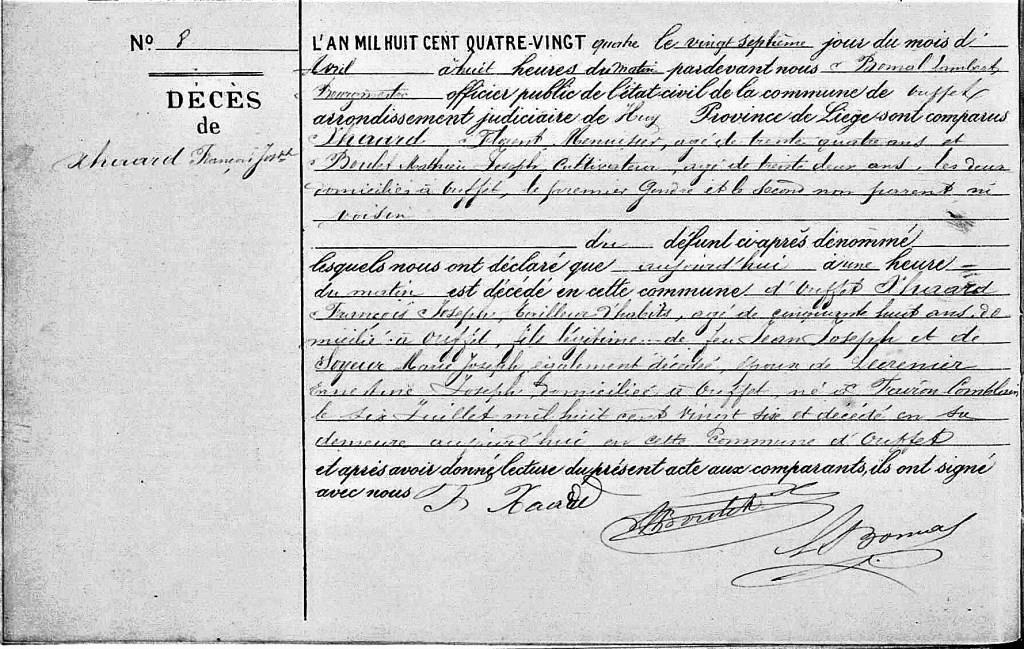 No 8
DÉCÈS
de
Xhurard François Joseph
L'AN MIL HUIT CENT QUATRE-VINGT quatre le vingt septième jour du mois d'
Avril à huit heures du matin pardevant nous Bomal Lambert,
Bourgmestre officier public de l'état-civil de la commune de Ouffet
arrondissement judiciaire de Huy Province de Liège sont comparus
Florent, Menuisier, agé de trente quatre ans et
Boulet Mathieu Joseph Cultivateur, agé de trente deux ans les deux
domiciliés à Ouffet, le premier Gendre et le second non parent ni
voisin
du défunt ci-après dénommé
lesquels nous ont déclaré que aujourd'hui à une heure
du matin est décédé en cette commune d'Ouffet Xhurard
François Joseph, Tailleur d'habits, agé de cinquante huit ans, do
micilié à Ouffet, fils légitime de feu Jean Joseph et de
Marie Joseph également décédée, époux de
Ernestine Joseph domiciliée à Ouffet, né à
le six Juillet mil huit cent vingt six et décédé en sa
demeure aujourd'hui en cette Commune d'Ouffet
et après avoir donné lecture du présent acte aux comparants, ils ont signé
avec nous
Boulet
Bomal